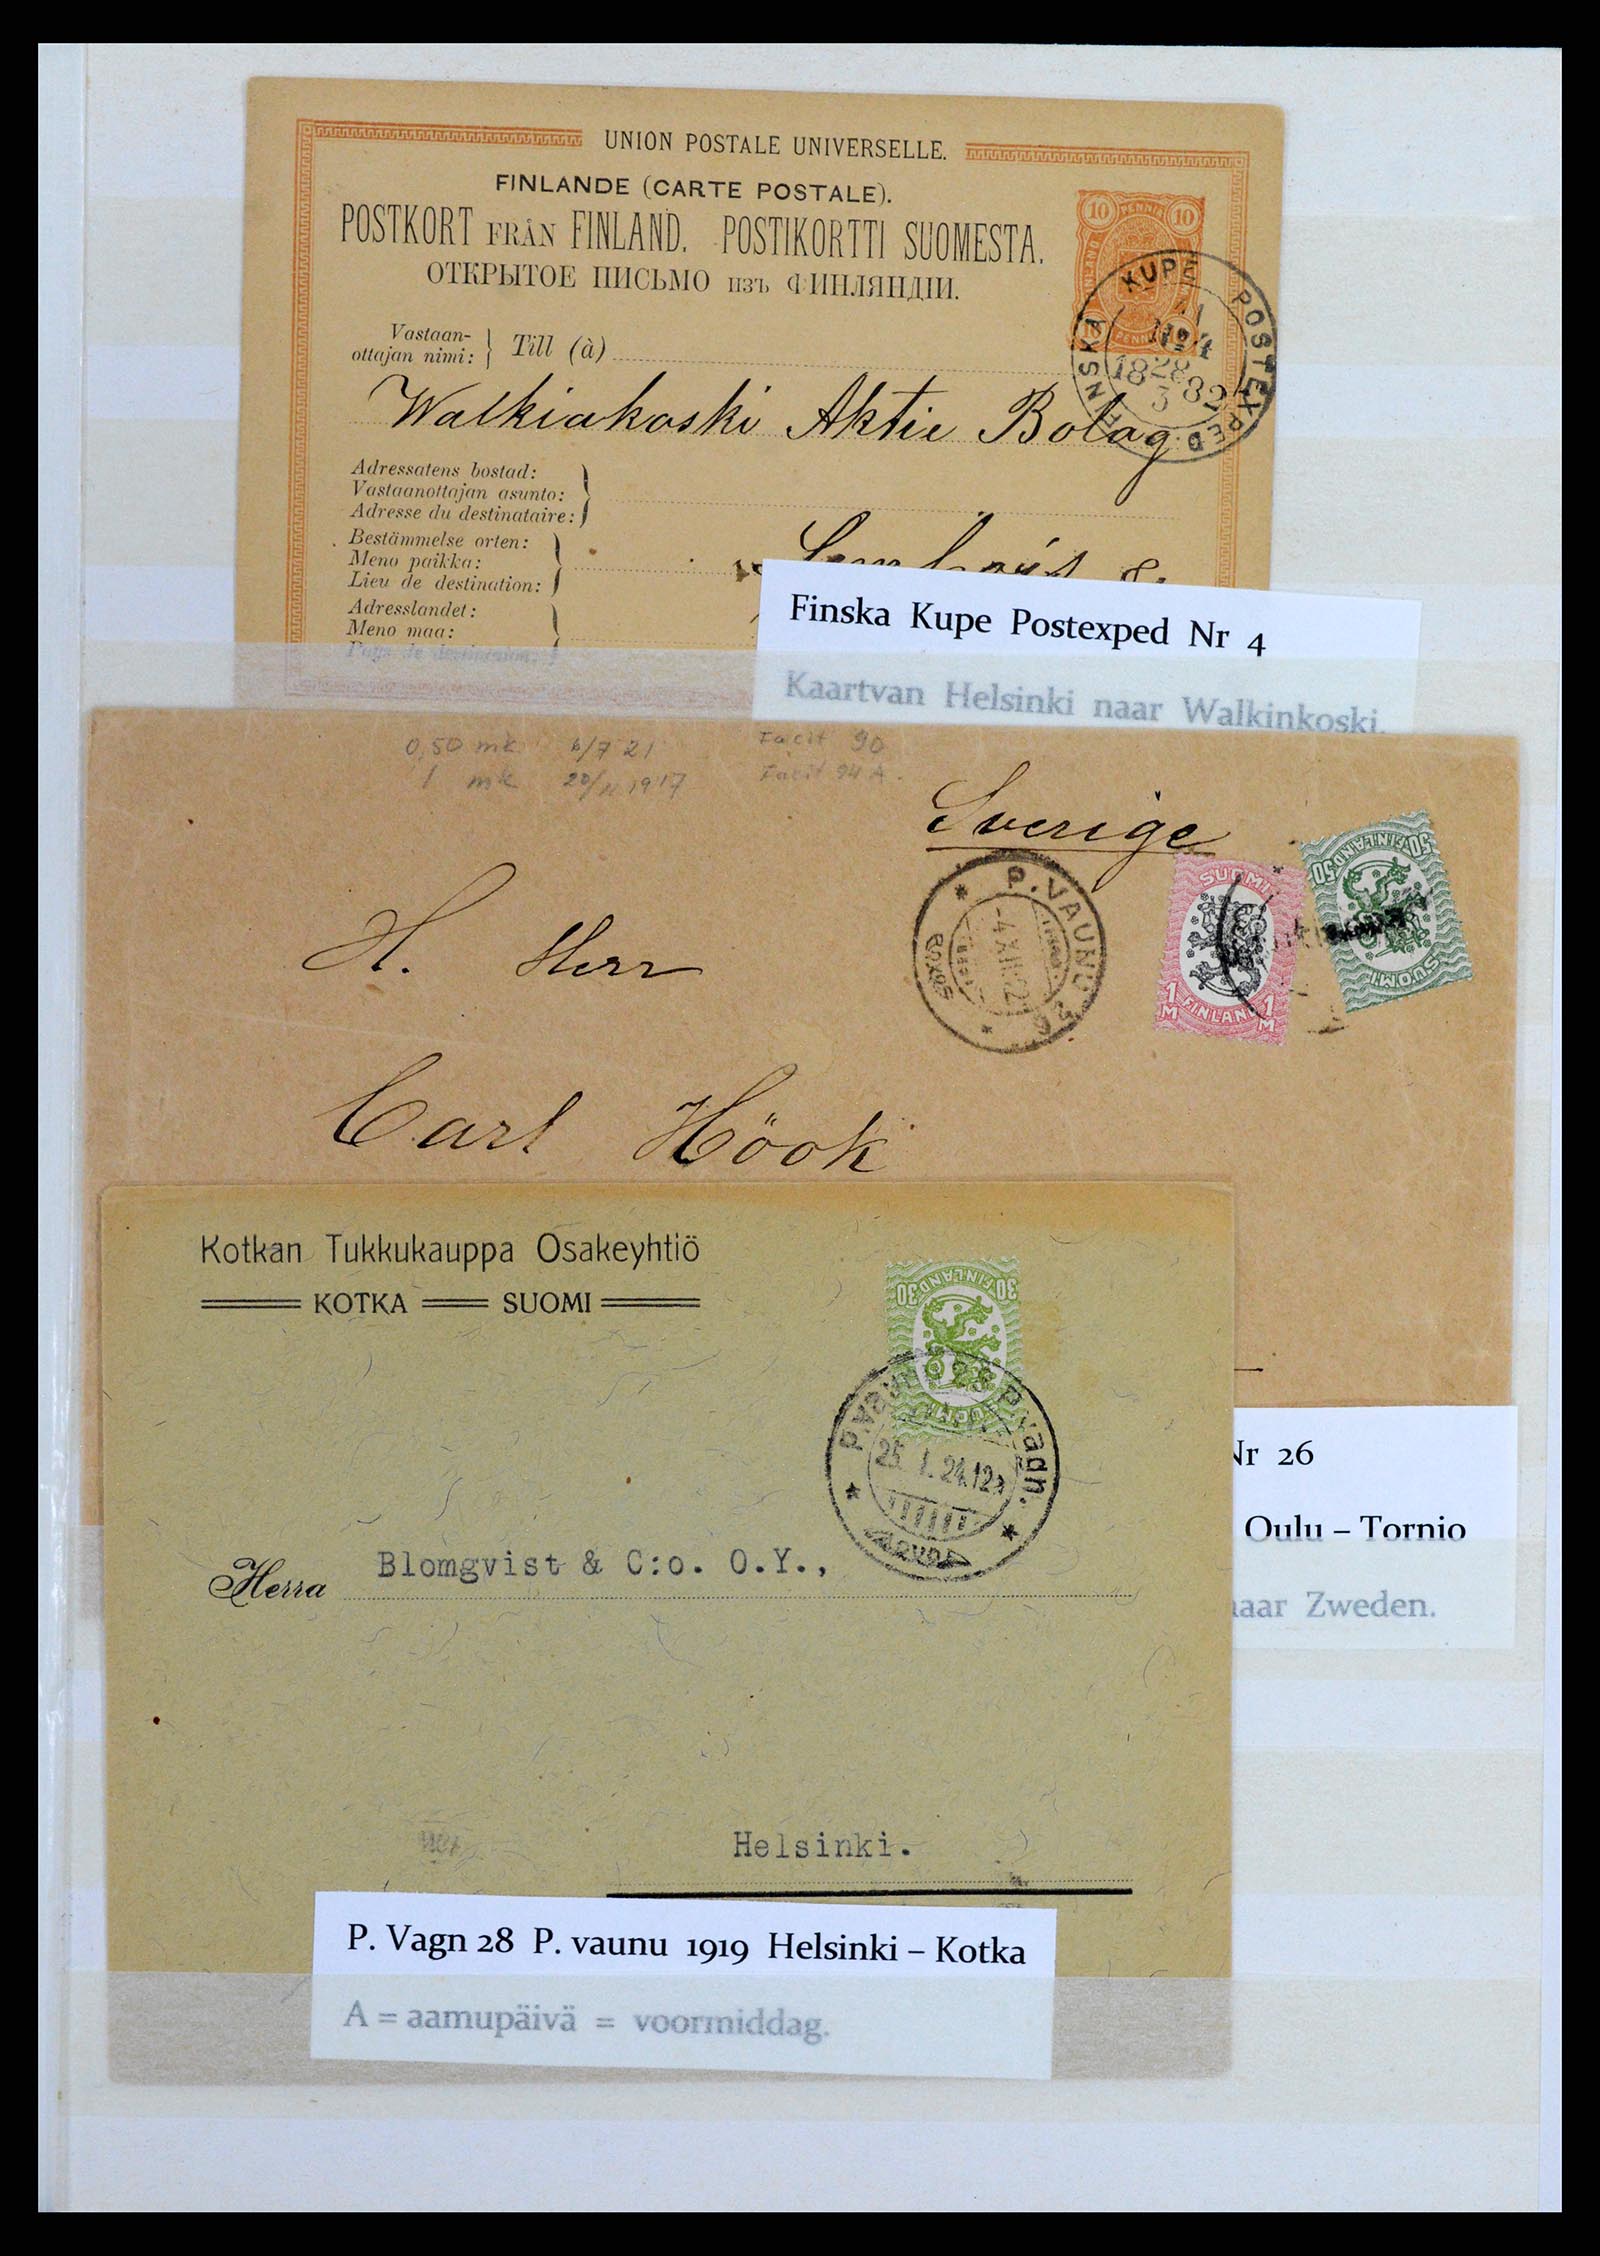 UNION POSTALE UNIVERSELLE.
FINLANDE (CARTE POSTALE).
POSTKORT FRÅN FINLAND. POSTIKORTTI SUOMESTA.
ОТКРЫТОЕ ПИСЬМО изъ ФИНЛЯНДІИ.
10 PENNIA 10
FINSKA KUPÉ POSTEXPED.
No 4
28
18 82
3
Vastaan-
ottajan nimi:
Till (à)
Walkiakoski Aktie Bolag
Adressatens bostad:
Vastaanottajan asunto:
Adresse du destinataire:
Bestämmelse orten:
Meno paikka:
Lieu de destination:
Adresslandet:
Meno maa:
Pays de destination:
Finska Kupe Postexped Nr 4
Kaartvan Helsinki naar Walkinkoski.
0,50 mk 6/7 21 Facit 90
1 mk 20/11 1917 Facit 94 A.
Sverige
P.VAUNU 26
SUOMI
1 M FINLAND 1 M
50 FINLAND 50
SUOMI
H. Herr
Carl Höök
Kotkan Tukkukauppa Osakeyhtiö
KOTKA SUOMI
30 FINLAND 30
SUOMI
P.vaunu 28 P.vagn.
25. I. 24.12a
Herra Blomgvist & C:o. O.Y.,
Helsinki.
Nr 26
Oulu – Tornio
naar Zweden.
P. Vagn 28 P. vaunu 1919 Helsinki – Kotka
A = aamupäivä = voormiddag.